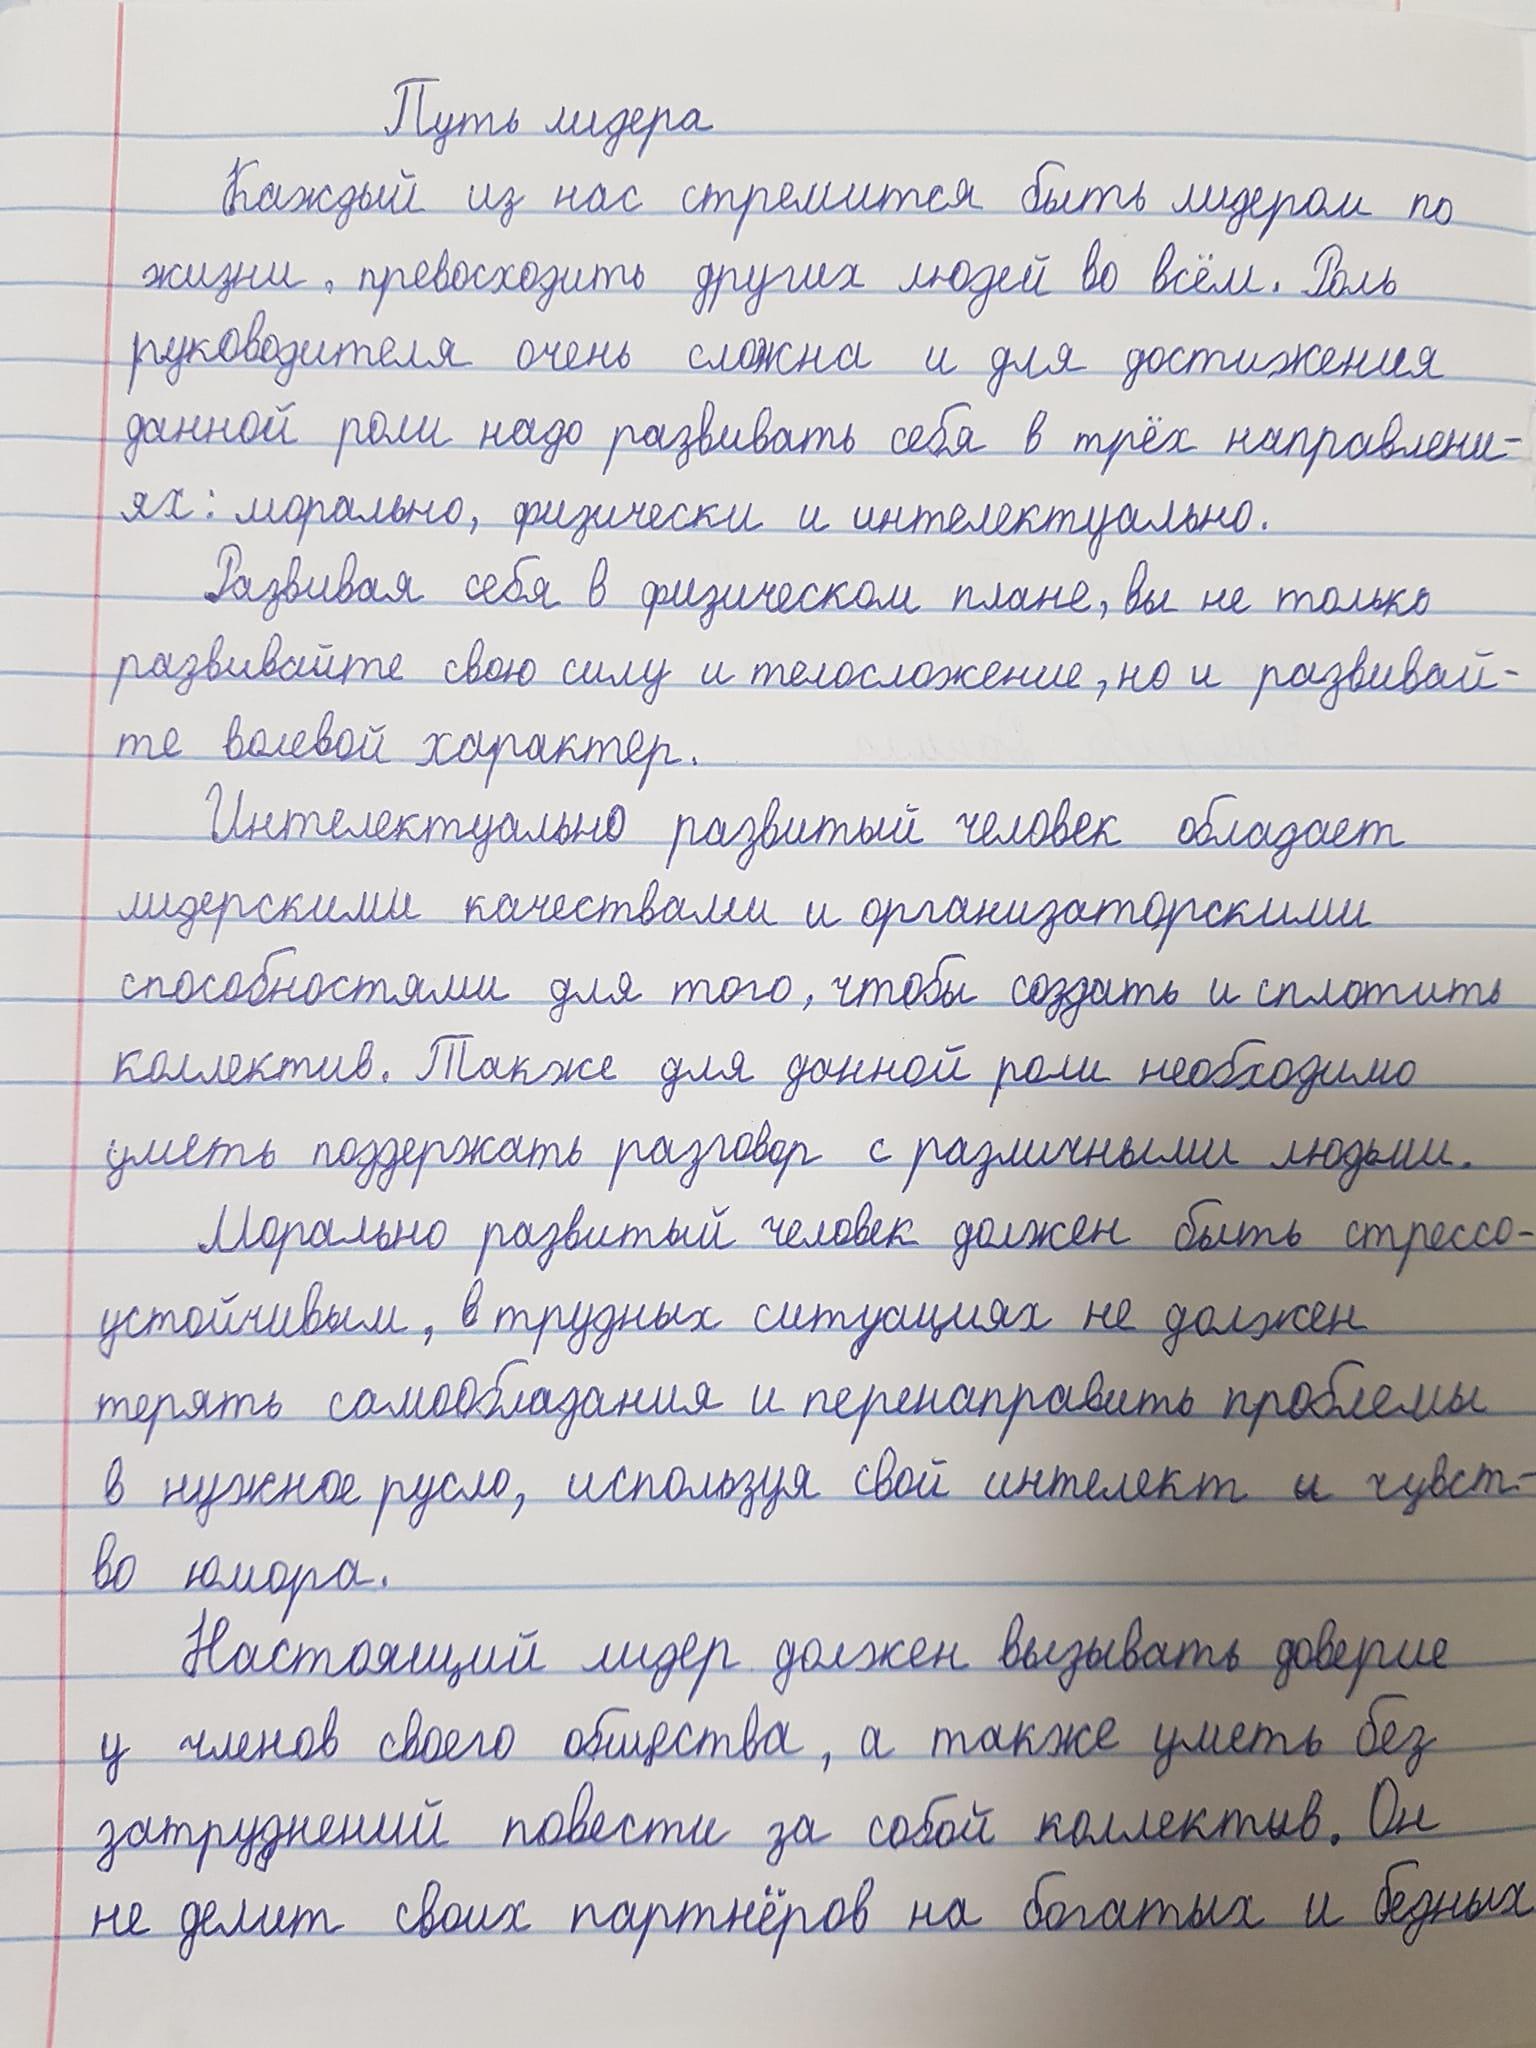 Путь лидера
Каждый из нас стремится быть лидером по
жизни, превосходить других людей во всём. Роль
руководителя очень сложна и для достижения
данной роли надо развивать себя в трёх направлени-
ях: морально, физически и интелектуально.
Развивая себя в физическом плане, вы не только
развивайте свою силу и телосложение, но и развивай-
те волевой характер.
Интелектуально развитый человек обладает
лидерскими качествами и организаторскими
способностями для того, чтобы создать и сплотить
коллектив. Также для данной роли необходимо
уметь поддержать разговор с различными людьми.
Морально развитый человек должен быть стрессо-
устойчивым, в трудных ситуациях не должен
терять самообладания и перенаправить проблемы
в нужное русло, используя свой интелект и чувст-
во юмора.
Настоящий лидер должен вызывать доверие
у членов своего общества, а также уметь без
затруднений повести за собой коллектив. Он
не делит своих партнёров на богатых и бедных